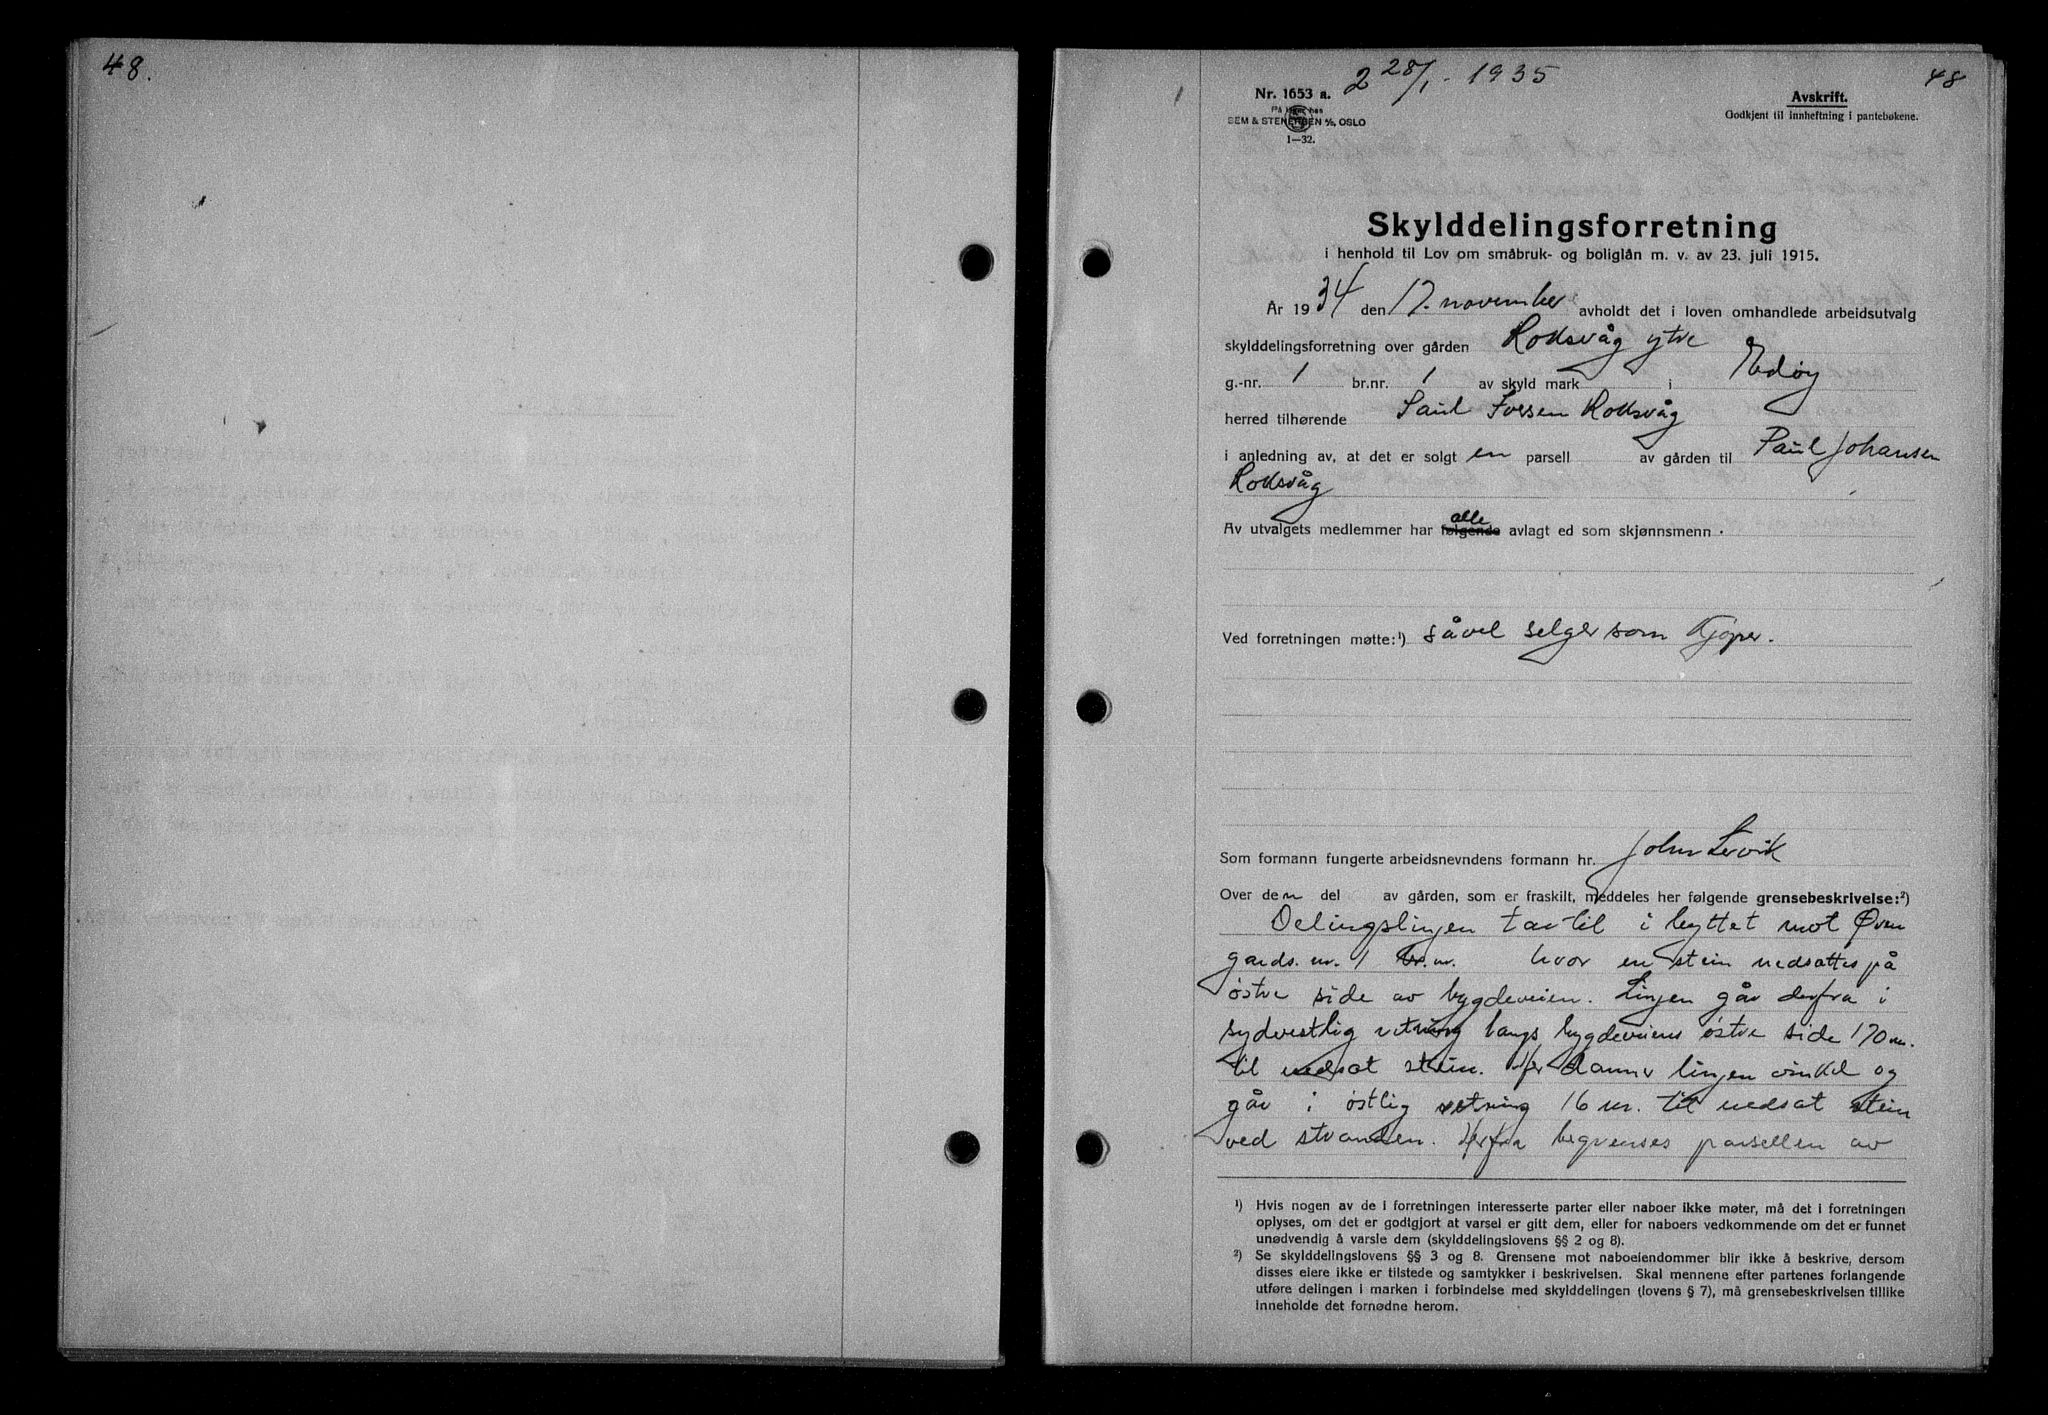 48.
2 28/1 - 1935
48
Nr. 1653 a.
På lager hos
SEM & STENERSEN A/S, OSLO
1—32.
Avskrift.
Godkjent til innheftning i pantebøkene.
Skylddelingsforretning
i henhold til Lov om småbruk- og boliglån m. v. av 23. juli 1915.
År 1934 den 17. november avholdt det i loven omhandlede arbeidsutvalg
skylddelingsforretning over gården Roksvåg ytre
g.-nr. 1 br.nr. 1 av skyld mark i Edøy
herred tilhørende Paul Iversen Roksvåg
i anledning av, at det er solgt en parsell av gården til Paul Johansen
Roksvåg
Av utvalgets medlemmer har følgende alle avlagt ed som skjønnsmenn.
Ved forretningen møtte:¹) såvel selger som kjøper.
Som formann fungerte arbeidsnevndens formann hr. John Lervik
Over den del av gården, som er fraskilt, meddeles her følgende grensebeskrivelse:²)
Delingslinjen tar til i byttet mot Øven
gards. nr. 1 br.nr. hvor en stein nedsattes på
østre side av bygdeveien. Linjen går derfra i
sydvestlig retning langs bygdeveiens østre side 170 m.
til nedsat stein. Her danner linjen vinkel og
går i østlig retning 16 m. til nedsat stein
ved stranden. Herfra begrenses parsellen av
¹) Hvis nogen av de i forretningen interesserte parter eller naboer ikke møter, må det i forretningen
oplyses, om det er godtgjort at varsel er gitt dem, eller for naboers vedkommende om det er funnet
unødvendig å varsle dem (skylddelingslovens §§ 2 og 8).
²) Se skylddelingslovens §§ 3 og 8. Grensene mot naboeiendommer blir ikke å beskrive, dersom
disses eiere ikke er tilstede og samtykker i beskrivelsen. Skal mennene efter partenes forlangende
utføre delingen i marken i forbindelse med skylddelingen (lovens § 7), må grensebeskrivelsen tillike
inneholde det fornødne herom.